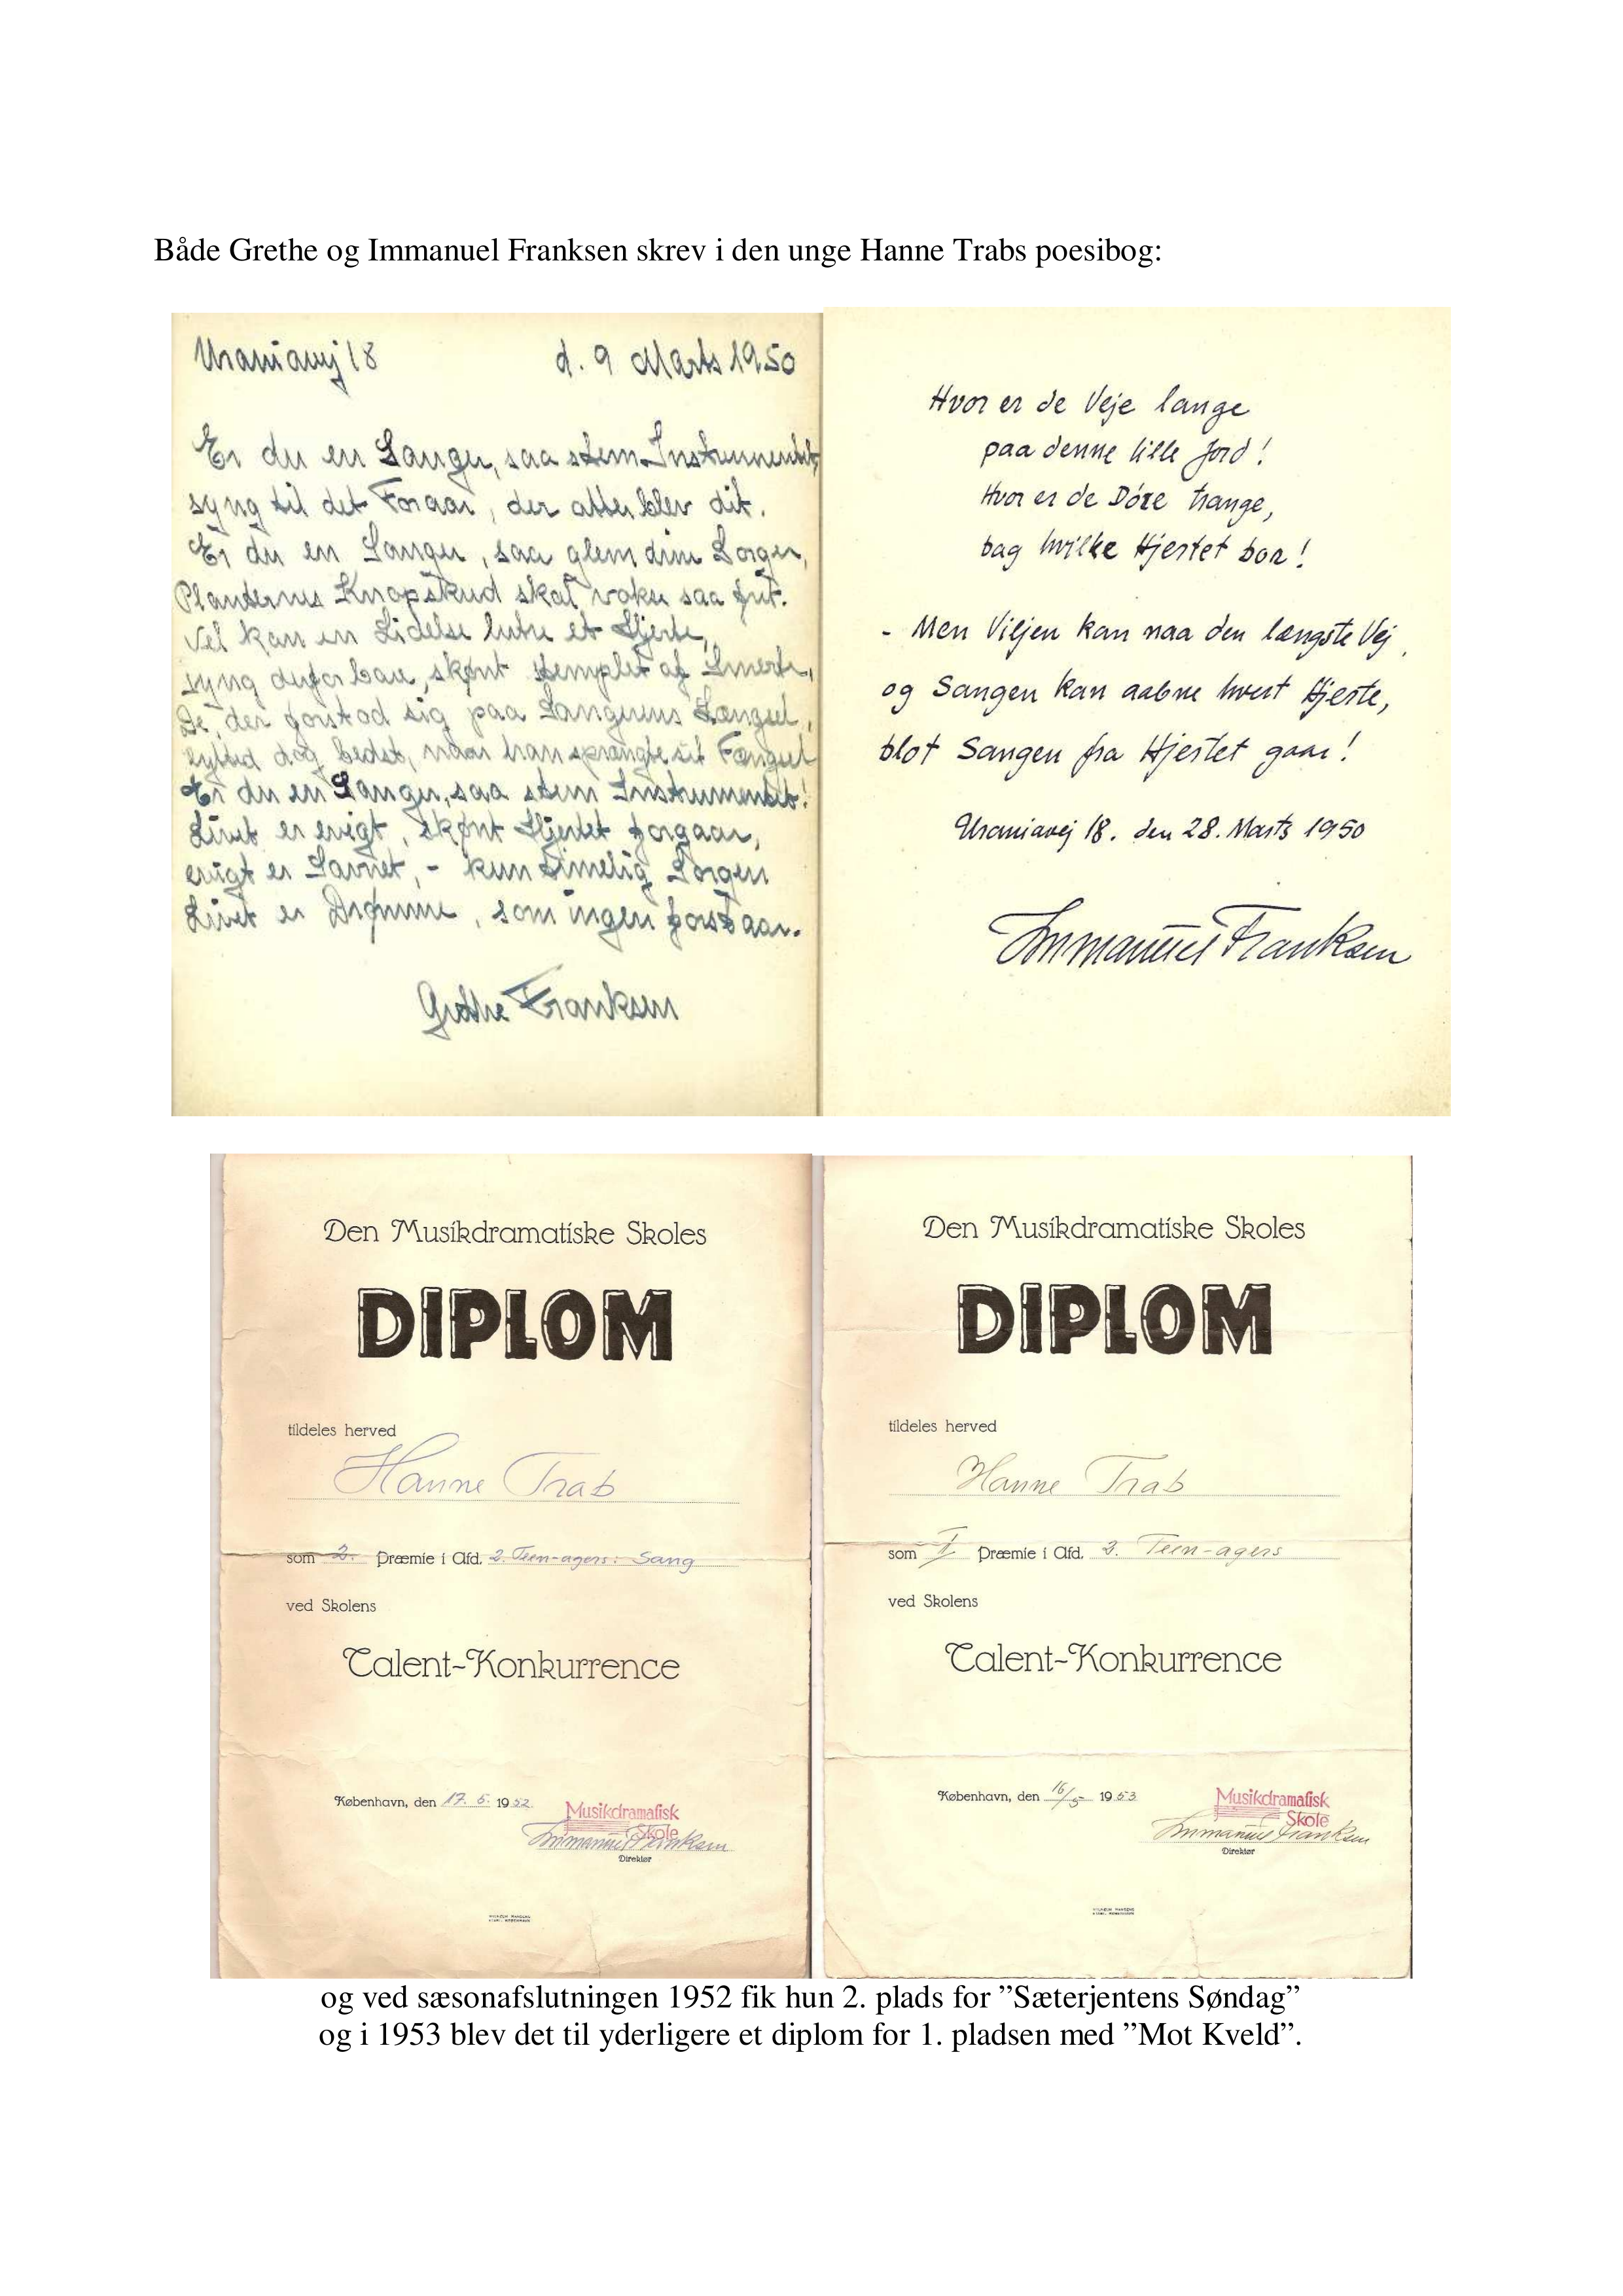 Både Grethe og Immanuel Franksen skrev i den unge Hanne Trabs poesibog:
Uraniavej 18 d. 9 Marts 1950
Er du en Sanger, saa stem Instrumentet,
syng til det Foraar, der atter blev dit.
Er du en Sanger, saa glem dine Sorger,
Planternes Knopskud skal vokse saa frit.
Vel kan en Lidelse lutre et Hjerte,
syng derfor bare, skønt stemplet af Smerte,
De, der forstod sig paa Sangerens Længsel,
lytted dog bedst, naar han sprængte sit Fængsel
Er du en Sanger, saa stem Instrumentet!
Livet er evigt, skønt Hjertet forgaar,
evigt er Savnet, - kun timelig Sorgen
Livet er Drømme, som ingen forstaar.
Grethe Franksen
Hvor er de Veje lange
paa denne lille Jord!
Hvor er de Döre trange,
bag hvilke Hjertet bor!
- Men Viljen kan naa den længste Vej,
og Sangen kan aabne hvert Hjerte,
blot Sangen fra Hjertet gaar!
Uraniavej 18. den 28. Marts 1950
Immanuel Franksen
Den Musikdramatiske Skoles
DIPLOM
tildeles herved
Hanne Trab
som 2. Præmie i Afd. 2. Teen-agers: Sang
ved Skolens
Talent-Konkurrence
København, den 17. 5. 1952
Musikdramatisk
Skole
Immanuel Franksen
Direktør
Den Musikdramatiske Skoles
DIPLOM
tildeles herved
Hanne Trab
som I Præmie i Afd. 2. Teen-agers
ved Skolens
Talent-Konkurrence
København, den 16/5 1953
Musikdramatisk
Skole
Immanuel Franksen
Direktør
og ved sæsonafslutningen 1952 fik hun 2. plads for ”Sæterjentens Søndag”
og i 1953 blev det til yderligere et diplom for 1. pladsen med ”Mot Kveld”.